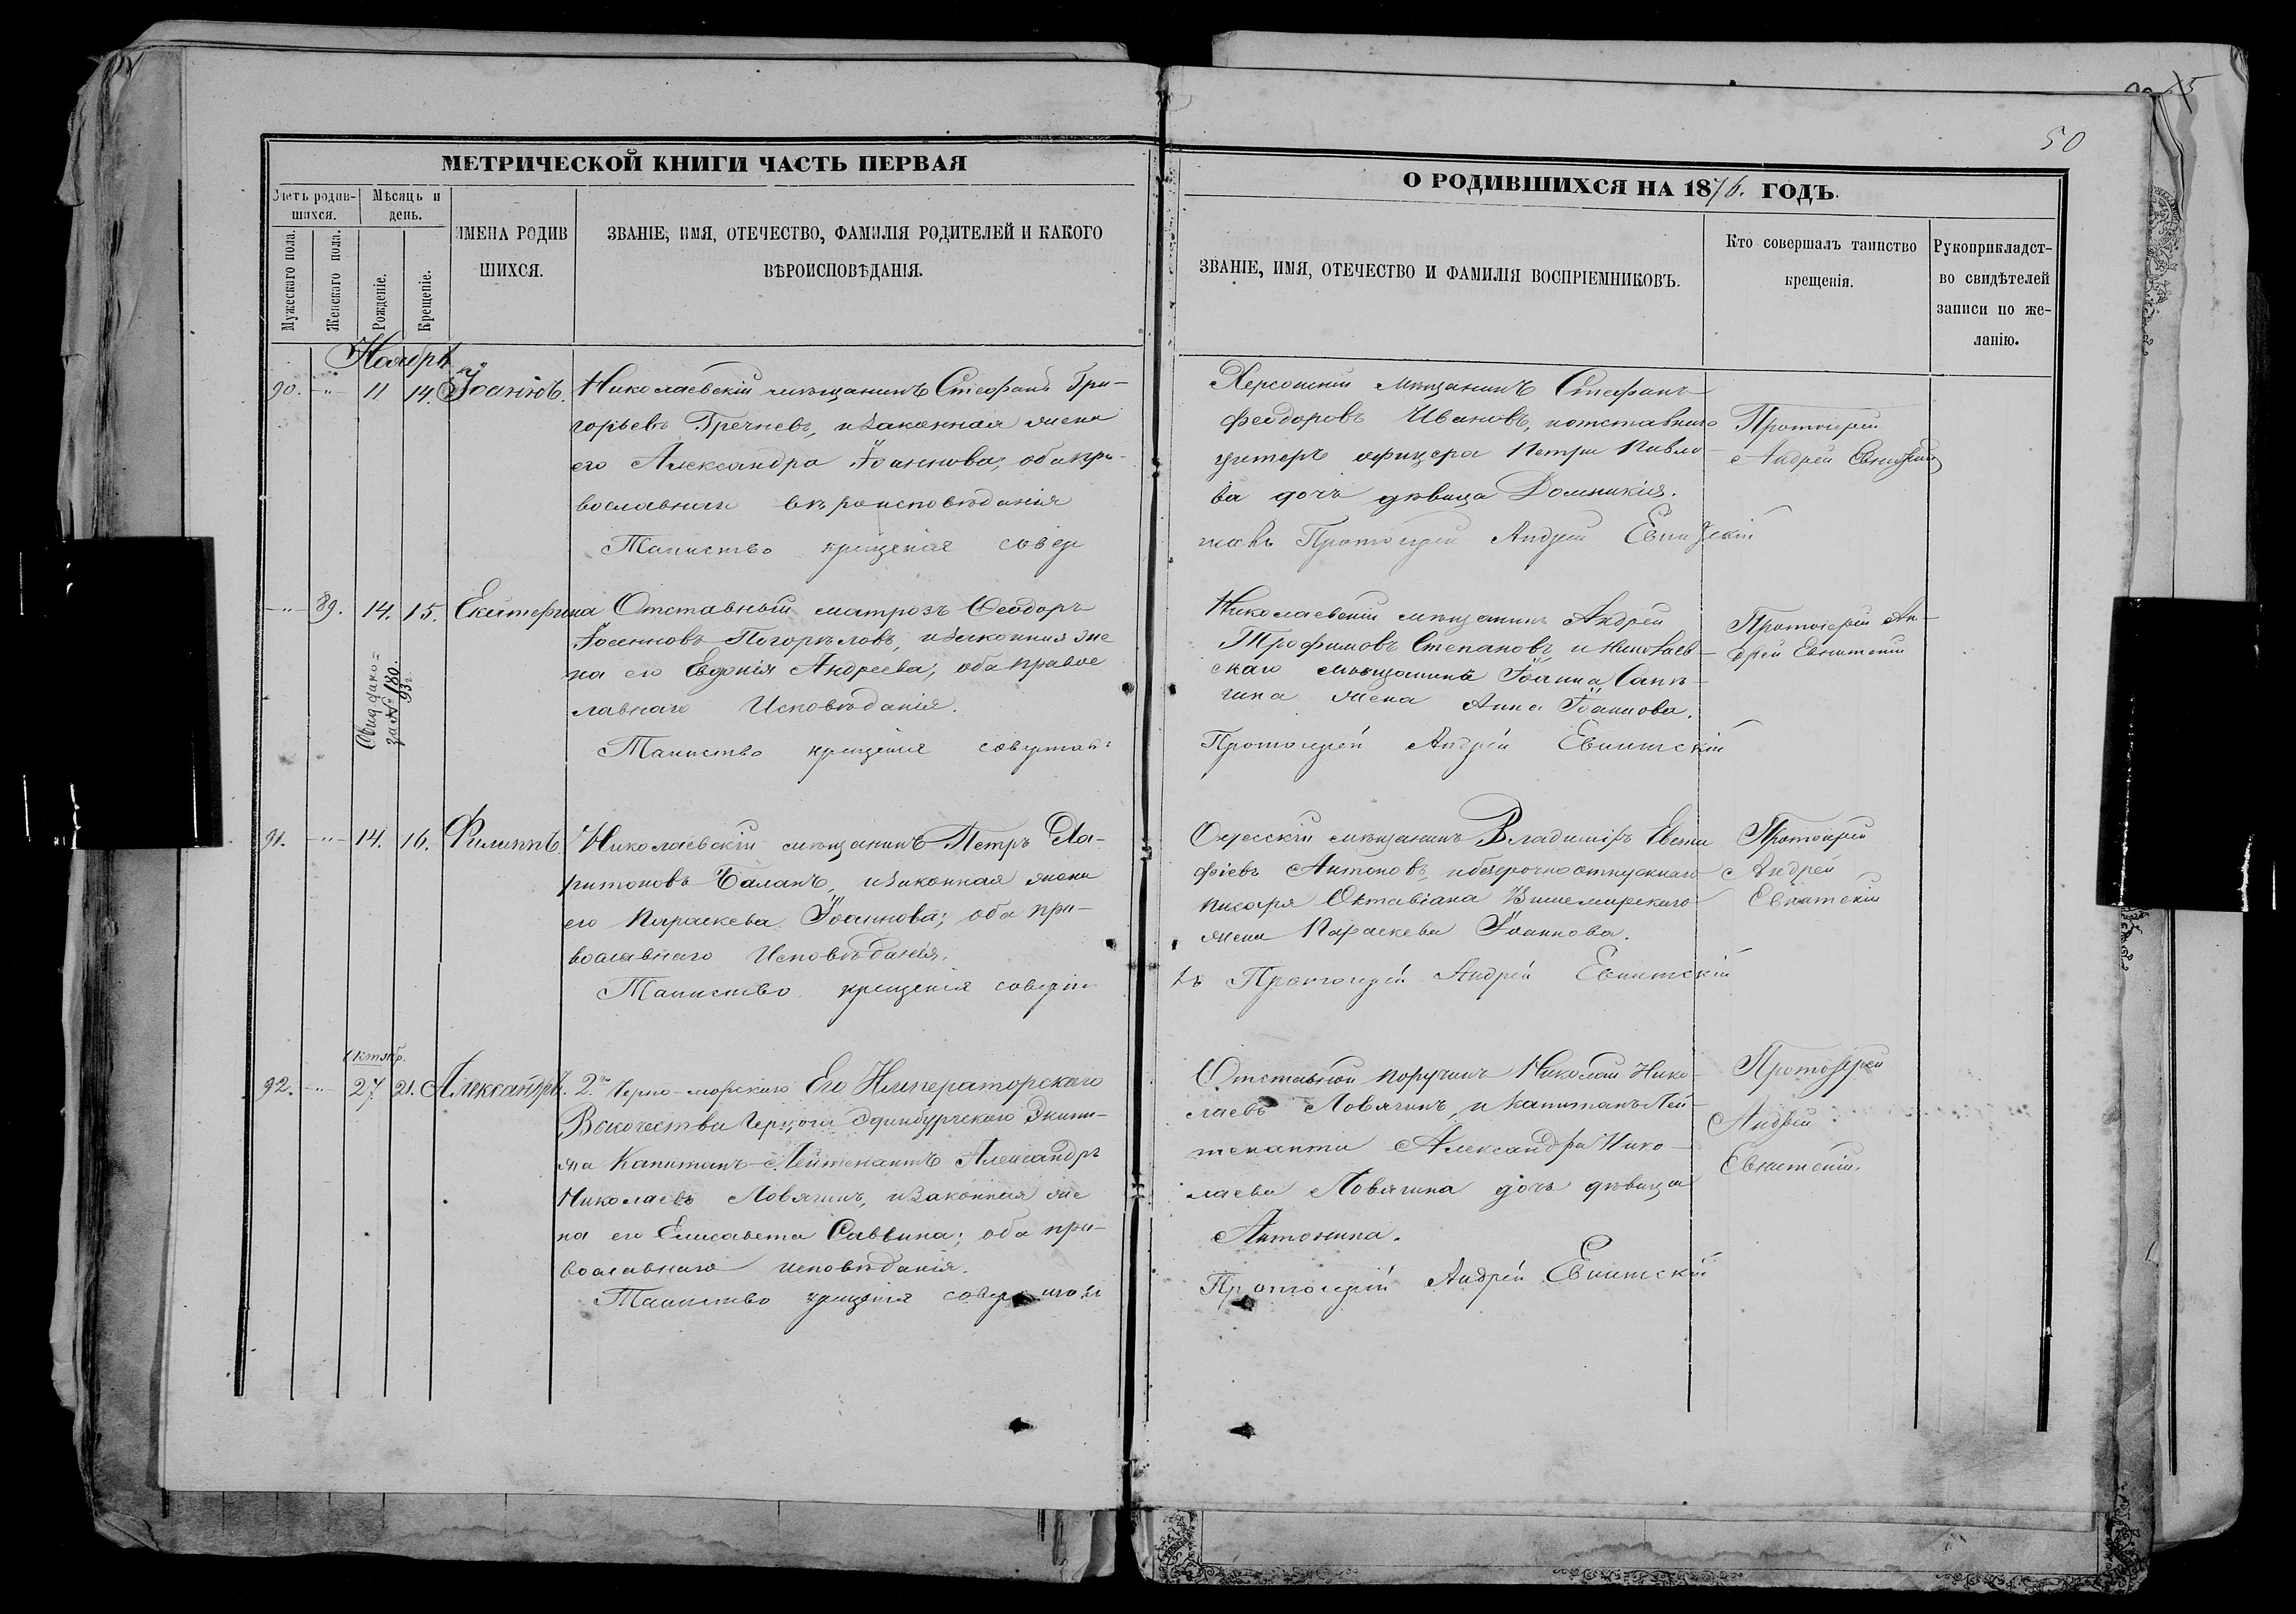 50
МЕТРИЧЕСКОЙ КНИГИ ЧАСТЬ ПЕРВАЯ
Счетъ родив-
шихся.
Мѣсяцъ и
день.
Мужескаго пола.
Женскаго пола.
Рожденіе.
Крещеніе.
ИМЕНА РОДИВ
ШИХСЯ.
ЗВАНІЕ, ИМЯ, ОТЕЧЕСТВО, ФАМИЛІЯ РОДИТЕЛЕЙ И КАКОГО
ВѢРОИСПОВѢДАНІЯ.
О РОДИВШИХСЯ НА 1876. ГОДЪ.
ЗВАНІЕ, ИМЯ, ОТЕЧЕСТВО И ФАМИЛІЯ ВОСПРІЕМНИКОВЪ.
Кто совершалъ таинство
крещенія.
Рукоприкладст-
во свидѣтелей
записи по же-
ланію.
Ноябрь
90. - " - 11 14. Іоаннъ.
Николаевскій мѣщанинъ Стефанъ Гри-
горьевъ Гречневъ, и законная жена
его Александра Іоаннова; оба пра-
вославнаго вѣроисповѣданія
Таинство крещенія совер
Херсонскій мѣщанинъ Стефанъ
Феодоровъ Ивановъ, и отставнаго
унтеръ офицера Петра Павло-
ва дочь дѣвица Домникія.
шалъ Протоіерей Андрей
Протоіерей
Андрей
- " - 89. 14. 15. Екатерина
Отставный матрозъ Феодоръ
Погорѣловъ, и законная же
на его Евдокія Андреева; оба правос
лавнаго Исповѣданія.
Таинство крещенія совершалъ
Свид. дано
за № 180.
93 г.
Николаевскій мѣщанинъ Андрей
Трофимовъ Степановъ и николаев-
скаго мѣщанина Іоанна
жена Анна Іоаннова.
Протоіерей Андрей Евнитскій
Протоіерей Ан-
дрей Евнитскій
91. - " - 14. 16. Филиппъ.
Николаевскій мѣщанинъ Петръ Ха-
ритоновъ Баланъ, и законная жена
его Параскева Іоаннова; оба пра-
вославнаго Исповѣданія.
Таинство крещенія соверша
Одесскій мѣщанинъ Владиміръ
фіевъ Антоновъ, и безсрочноотпускнаго
писаря Октавіана
жена Параскева Іоаннова.
лъ Протоіерей Андрей Евнитскій
Протоіерей
Андрей
Евнитскій
Октябр.
92. - " - 27 21. Александръ.
2го Черно-морскаго Его Императорскаго
Высочества Герцога Эдинбургскаго Экипа-
жа Капитанъ-Лейтенантъ Александръ
Николаевъ Ловягинъ, и законная же
на его Елисавета Саввина; оба пра-
вославнаго исповѣданія.
Таинство крещенія совершалъ
Отставной поручикъ Николай Нико-
лаевъ Ловягинъ и капитанъ Лей-
тенанта Александра Нико-
лаева Ловягина дочь дѣвица
Антонина.
Протоіерей Андрей Евнитскій
Протоіерей
Андрей
Евнитскій.